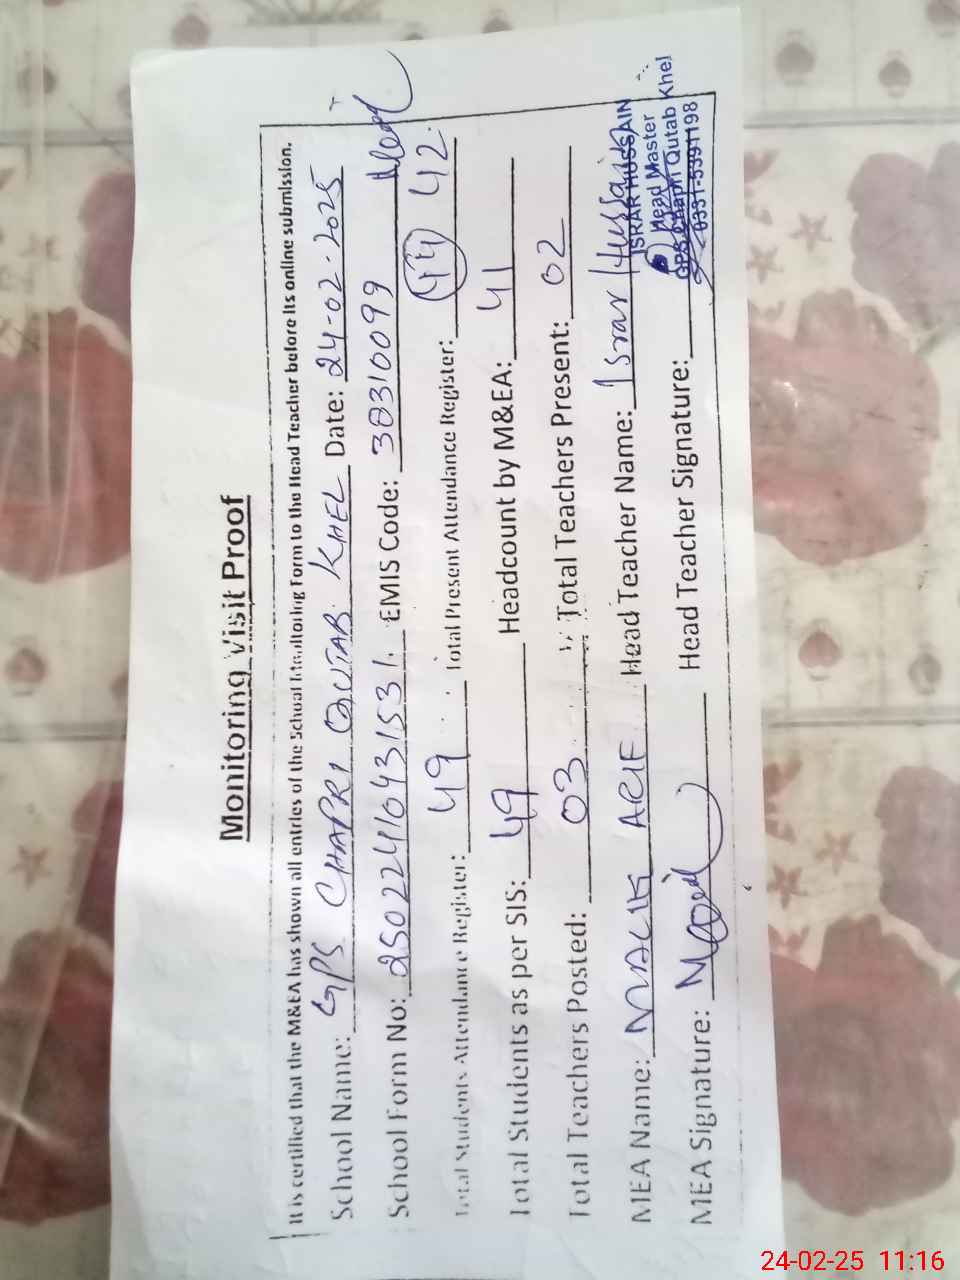 Monitoring Visit Proof
It is certified that the M&EA has shown all entries of the School Monitoring Form to the Head Teacher before its online submission.
School Name: GPS CHAPRI QUTAB KHEL Date: 24-02-2025
School Form No: 2502241043153 1. EMIS Code: 38310099
Total Students Attendance Register: 49 Total Present Attendance Register: 44 42
Total Students as per SIS: 49 Headcount by M&EA: 41
Total Teachers Posted: 03 Total Teachers Present: 02
MEA Name: MALIK ARIF Head Teacher Name: Israr Hussain
MEA Signature: Head Teacher Signature:
ISRAR HUSSAIN
Head Master
GPS Chapri Qutab Khel
0331-5391198
24-02-25 11:16